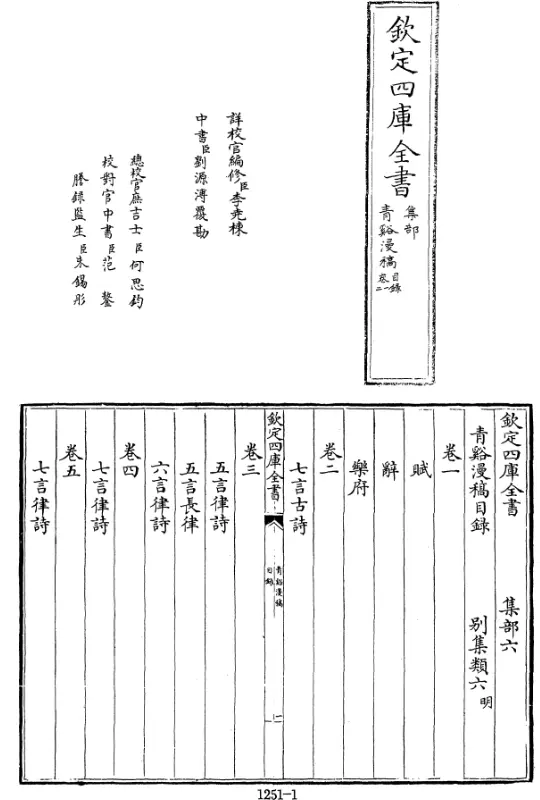 欽定四庫全書
集部
青谿漫稿
目錄
卷一
二
詳校官編修臣李堯棟
中書臣劉源溥覆勘
總校官庶吉士臣何思鈞
校對官中書臣范鏊
謄錄監生臣朱錫彤
欽定四庫全書 集部六
青谿漫稿目錄 別集類六 明
卷一
賦
辭
樂府
卷二
七言古詩
欽定四庫全書
青谿漫稿
目錄
一
卷三
五言律詩
五言長律
六言律詩
卷四
七言律詩
卷五
七言律詩
1251-1